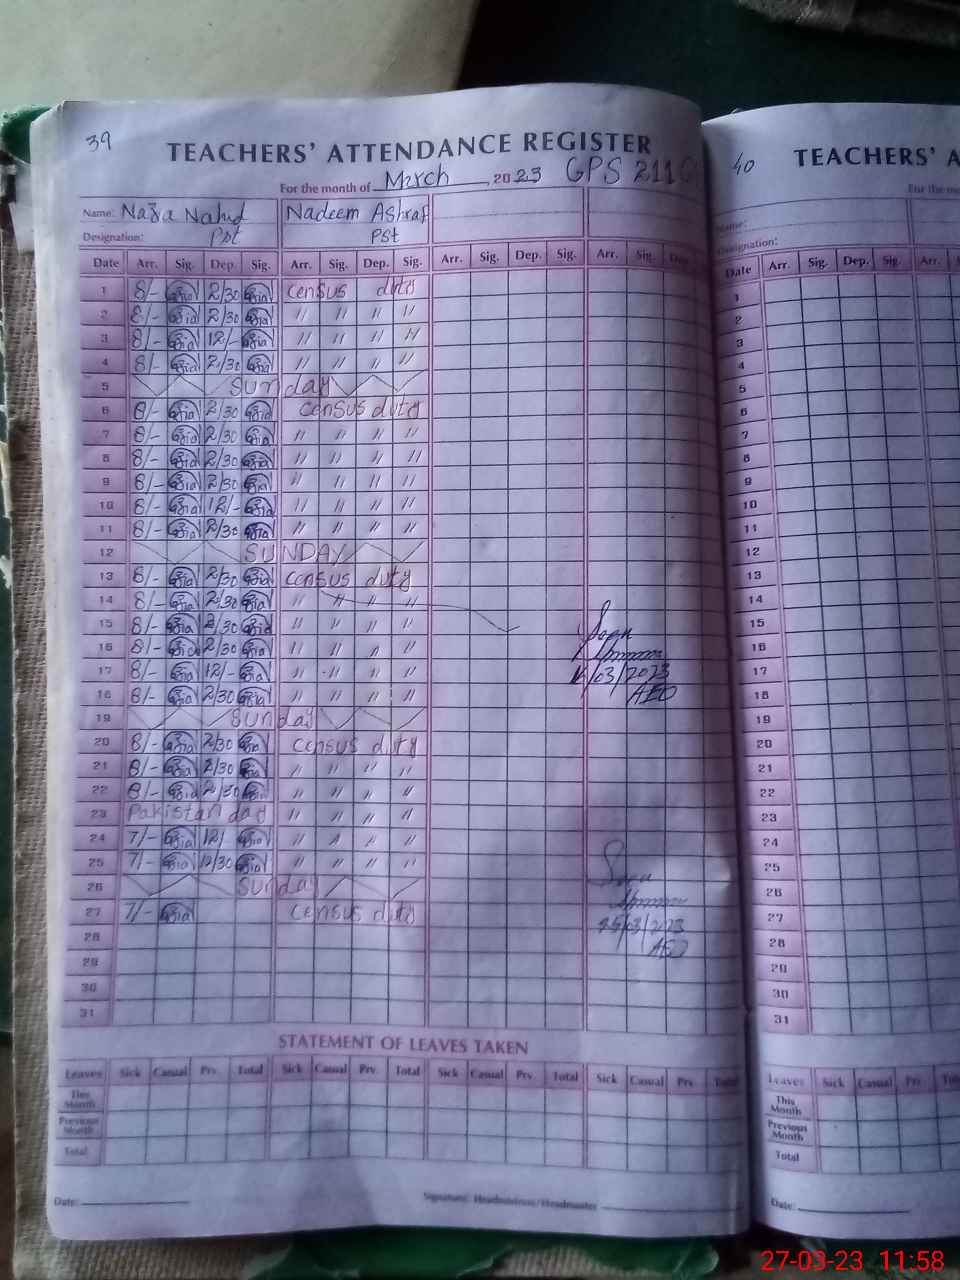 39
TEACHERS' ATTENDANCE REGISTER
For the month of March, 2023 GPS 211
Name: Naza Nahid Nadeem Ashraf
Designation: Pst Pst
Date Arr. Sig. Dep. Sig. Arr. Sig. Dep. Sig. Arr. Sig. Dep. Sig. Arr. Sig. Dep.
1 8/- 2/30 census duty
2 8/- 2/30 " " " "
3 8/- 12/- " " " "
4 8/- 2/30 " " " "
5 Sunday
6 8/- 2/30 census duty
7 8/- 2/30 " " " "
8 8/- 2/30 " " " "
9 8/- 2/30 " " " "
10 8/- 12/- " " " "
11 8/- 2/30 " " " "
12 SUNDAY
13 8/- 2/30 census duty
14 8/- 2/30 " " " "
15 8/- 2/30 " " " "
16 8/- 2/30 " " " "
17 8/- 12/- " " " " /03/2023
18 8/- 2/30 " " " " AEO
19 Sunday
20 8/- 2/30 census duty
21 8/- 2/30 " " " "
22 8/- 2/30 " " " "
23 Pakistan day " " " "
24 7/- 12/- " " " "
25 7/- 12/30 " " " "
26 Sunday
27 7/- census duty
28 AEO
29
30
31
STATEMENT OF LEAVES TAKEN
Leaves Sick Casual Prv. Total Sick Casual Prv. Total Sick Casual Prv. Total Sick Casual Prv. Total
This Month
Previous Month
Total
Date: Signature: Headmistress/Headmaster
40
TEACHERS' A
For the mo
Name:
Designation:
Date Arr. Sig. Dep. Sig. Arr.
1
2
3
4
5
6
7
8
9
10
11
12
13
14
15
16
17
18
19
20
21
22
23
24
25
26
27
28
29
30
31
Leaves Sick Casual Prv.
This Month
Previous Month
Total
Date:
27-03-23 11:58